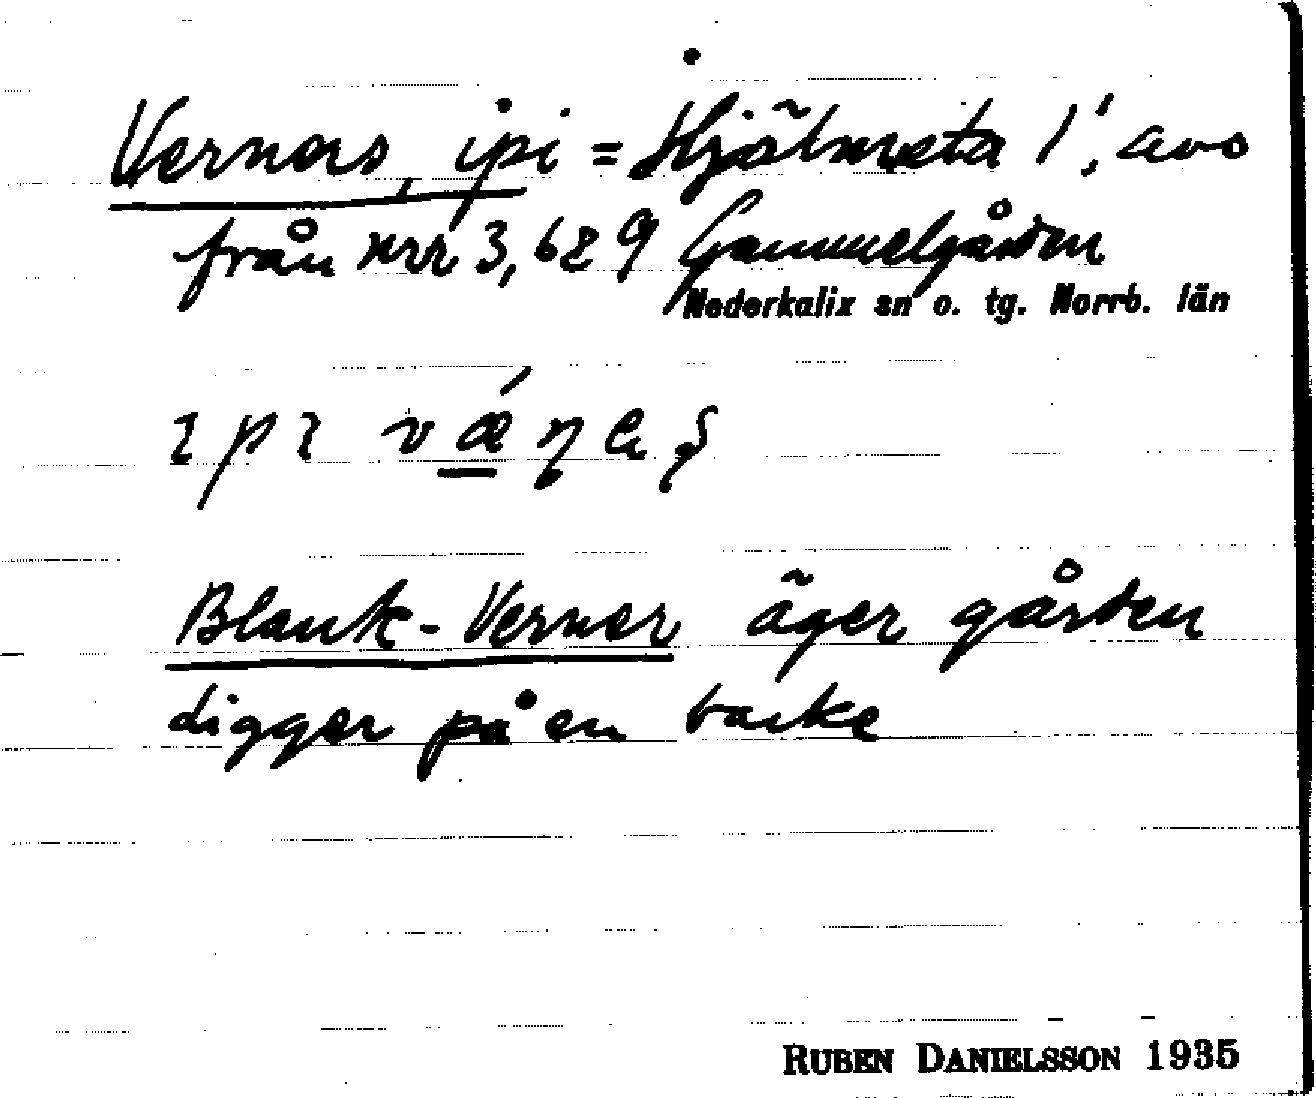 Verners, ipi = Hjälmeta 1', avs
från nrr 3, 6 & 9 Gammelgården
Nederkalix sn o. tg. Norrb. län
ɩpɩ vǽṇeṣ
Blank-Verner äger gården
ligger på en backe
RUBEN DANIELSSON 1935